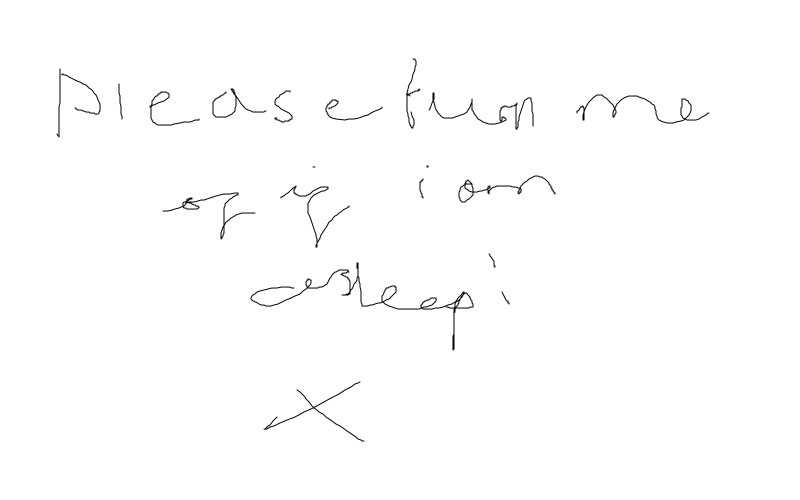 please turn me
of if i am
asleep!
X